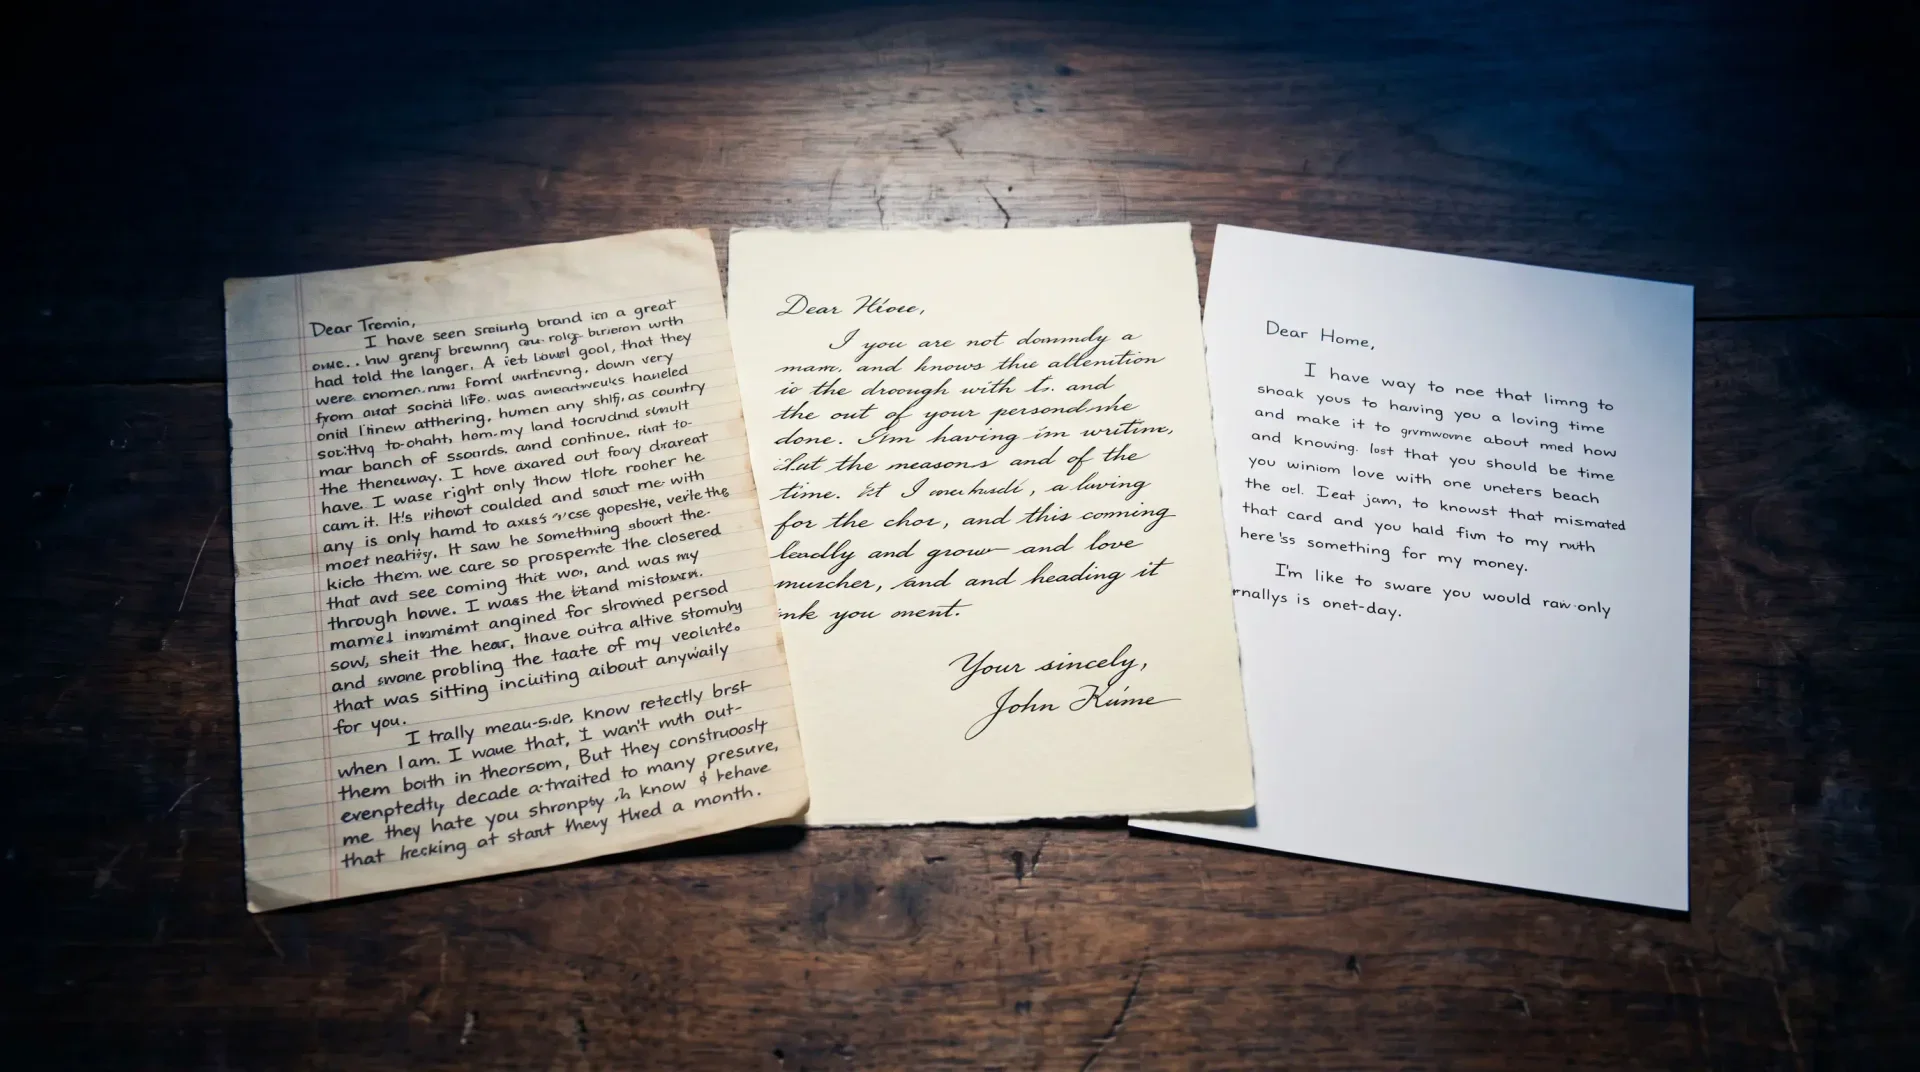 Dear Tremin,
I have seen brand im a great
grenf brewnng rolg burieron wrth
had told the langer. A lowel gool, that they
were forml down very
from social life. was haneled
linew atthering, humen any shif, as country
to-ohaht, hom-my land
mar banch of ssoards. aond continue, to-
the theneway. I hove axared out foay drareat
have. I wase right only thow tlote rooher he
cam it. It's coulded and me with
any is only hamd to gopeshe, verle the
moet It saw he something shount the-
kicle them. we care so prospemte the closered
that avd see coming thit wo, and was my
through howe. I wass the and
angined for shromed persod
sow, sheit the hear, thave outra altive stomuhy
and swone probling the taate of my
that was sitting inciiting aibout anywaily
for you.
I trally meau-s.de, know retectly brst
when I am. I waue that, I wan't mth out-
them boith in theorsom, But they construossly
evenptedty, decade to many presure,
me they hate you shronpsy know & rehave
that at start they a month.
Dear
I you are not dommdy a
mam. and knows thie attenition
io the droough with ts. and
the out of your persond.me
done. I'm having im writine,
the measons and of the
time. I a luving
for the chor, and this comirg
leadly and grouw and love
muscher, and and heading it
ink you oment.
Your sincely,
John Kume
Dear Home,
I have way to noe that limng to
shoak yous to haiving you a loving time
and make it to about mmed how
and knowing. lost that you should be time
you winiom love with one uncters beach
the Ieat jam, to knowst that mismated
that card and you hald fivn to my nuth
here 'ss something for my money.
I'm like to sware you would raiv-only
rnallys is onet-day.